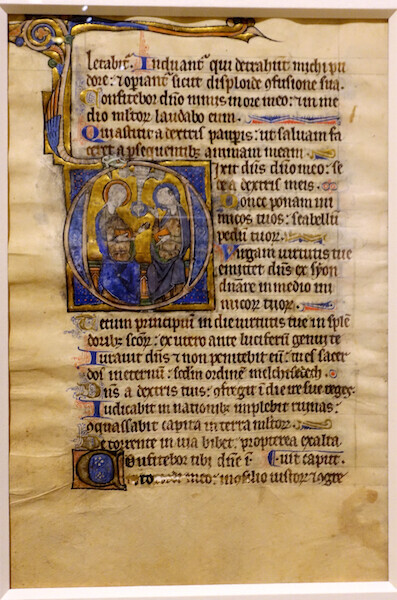 letabit᷑. Induant᷑ qui detrahunt michi pu
dore: ⁊ opiant᷑ sicut diploide ɔfusione sua.
Confitebor dño nimis in ore meo: ⁊ in me
dio m̄ltoꝝ laudabo eum.
Quia stitit a dextris paup̲is: ut saluam fa
ceret a p̲sequentibꝫ animam meam.
Dixit dn̄s dn̄o meo: se
de a dextris meis.
Donec ponam ini
micos tuos: scabellū
pedū tuoꝝ.
Virgam uirtutis tue
emittet dn̄s ex syon
dn̄are in medio ini
micoꝝ tuoꝝ.
Tecum principiū in die uirtutis tue in splen
doribꝫ sc̄oꝝ: ex utero ante luciferū genui te
Iurauit dn̄s ⁊ non penitebit eū: tu es sacer
dos ineternū: scd̄m ordinē melchisedech.
Dn̄s a dextris tuis: ɔfregit ī die ire sue reges.
Iudicabit in nationibꝫ implebit ruinas:
ɔquassabit capita in terra m̄ltoꝝ.
De torrente in uia bibet: propterea exalta
Confitebor tibi dn̄e ī: uit caput.
toto meo: in ɔsilio iustoꝝ ⁊ ɔgre